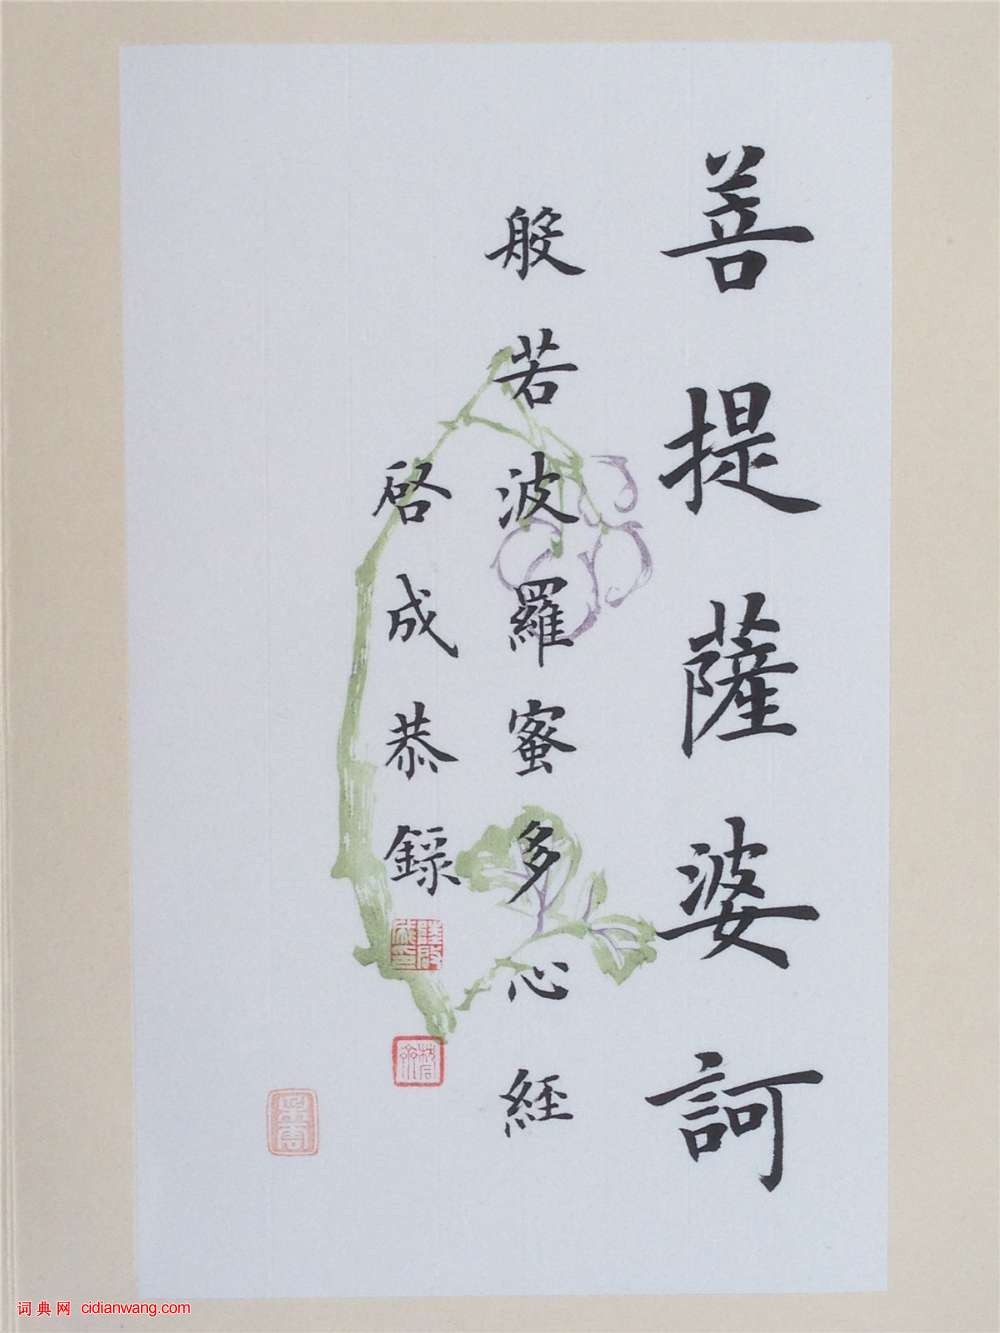 菩提薩婆訶
般若波羅蜜多心経
啓成恭録
陸啟成印
词典网 cidianwang.com